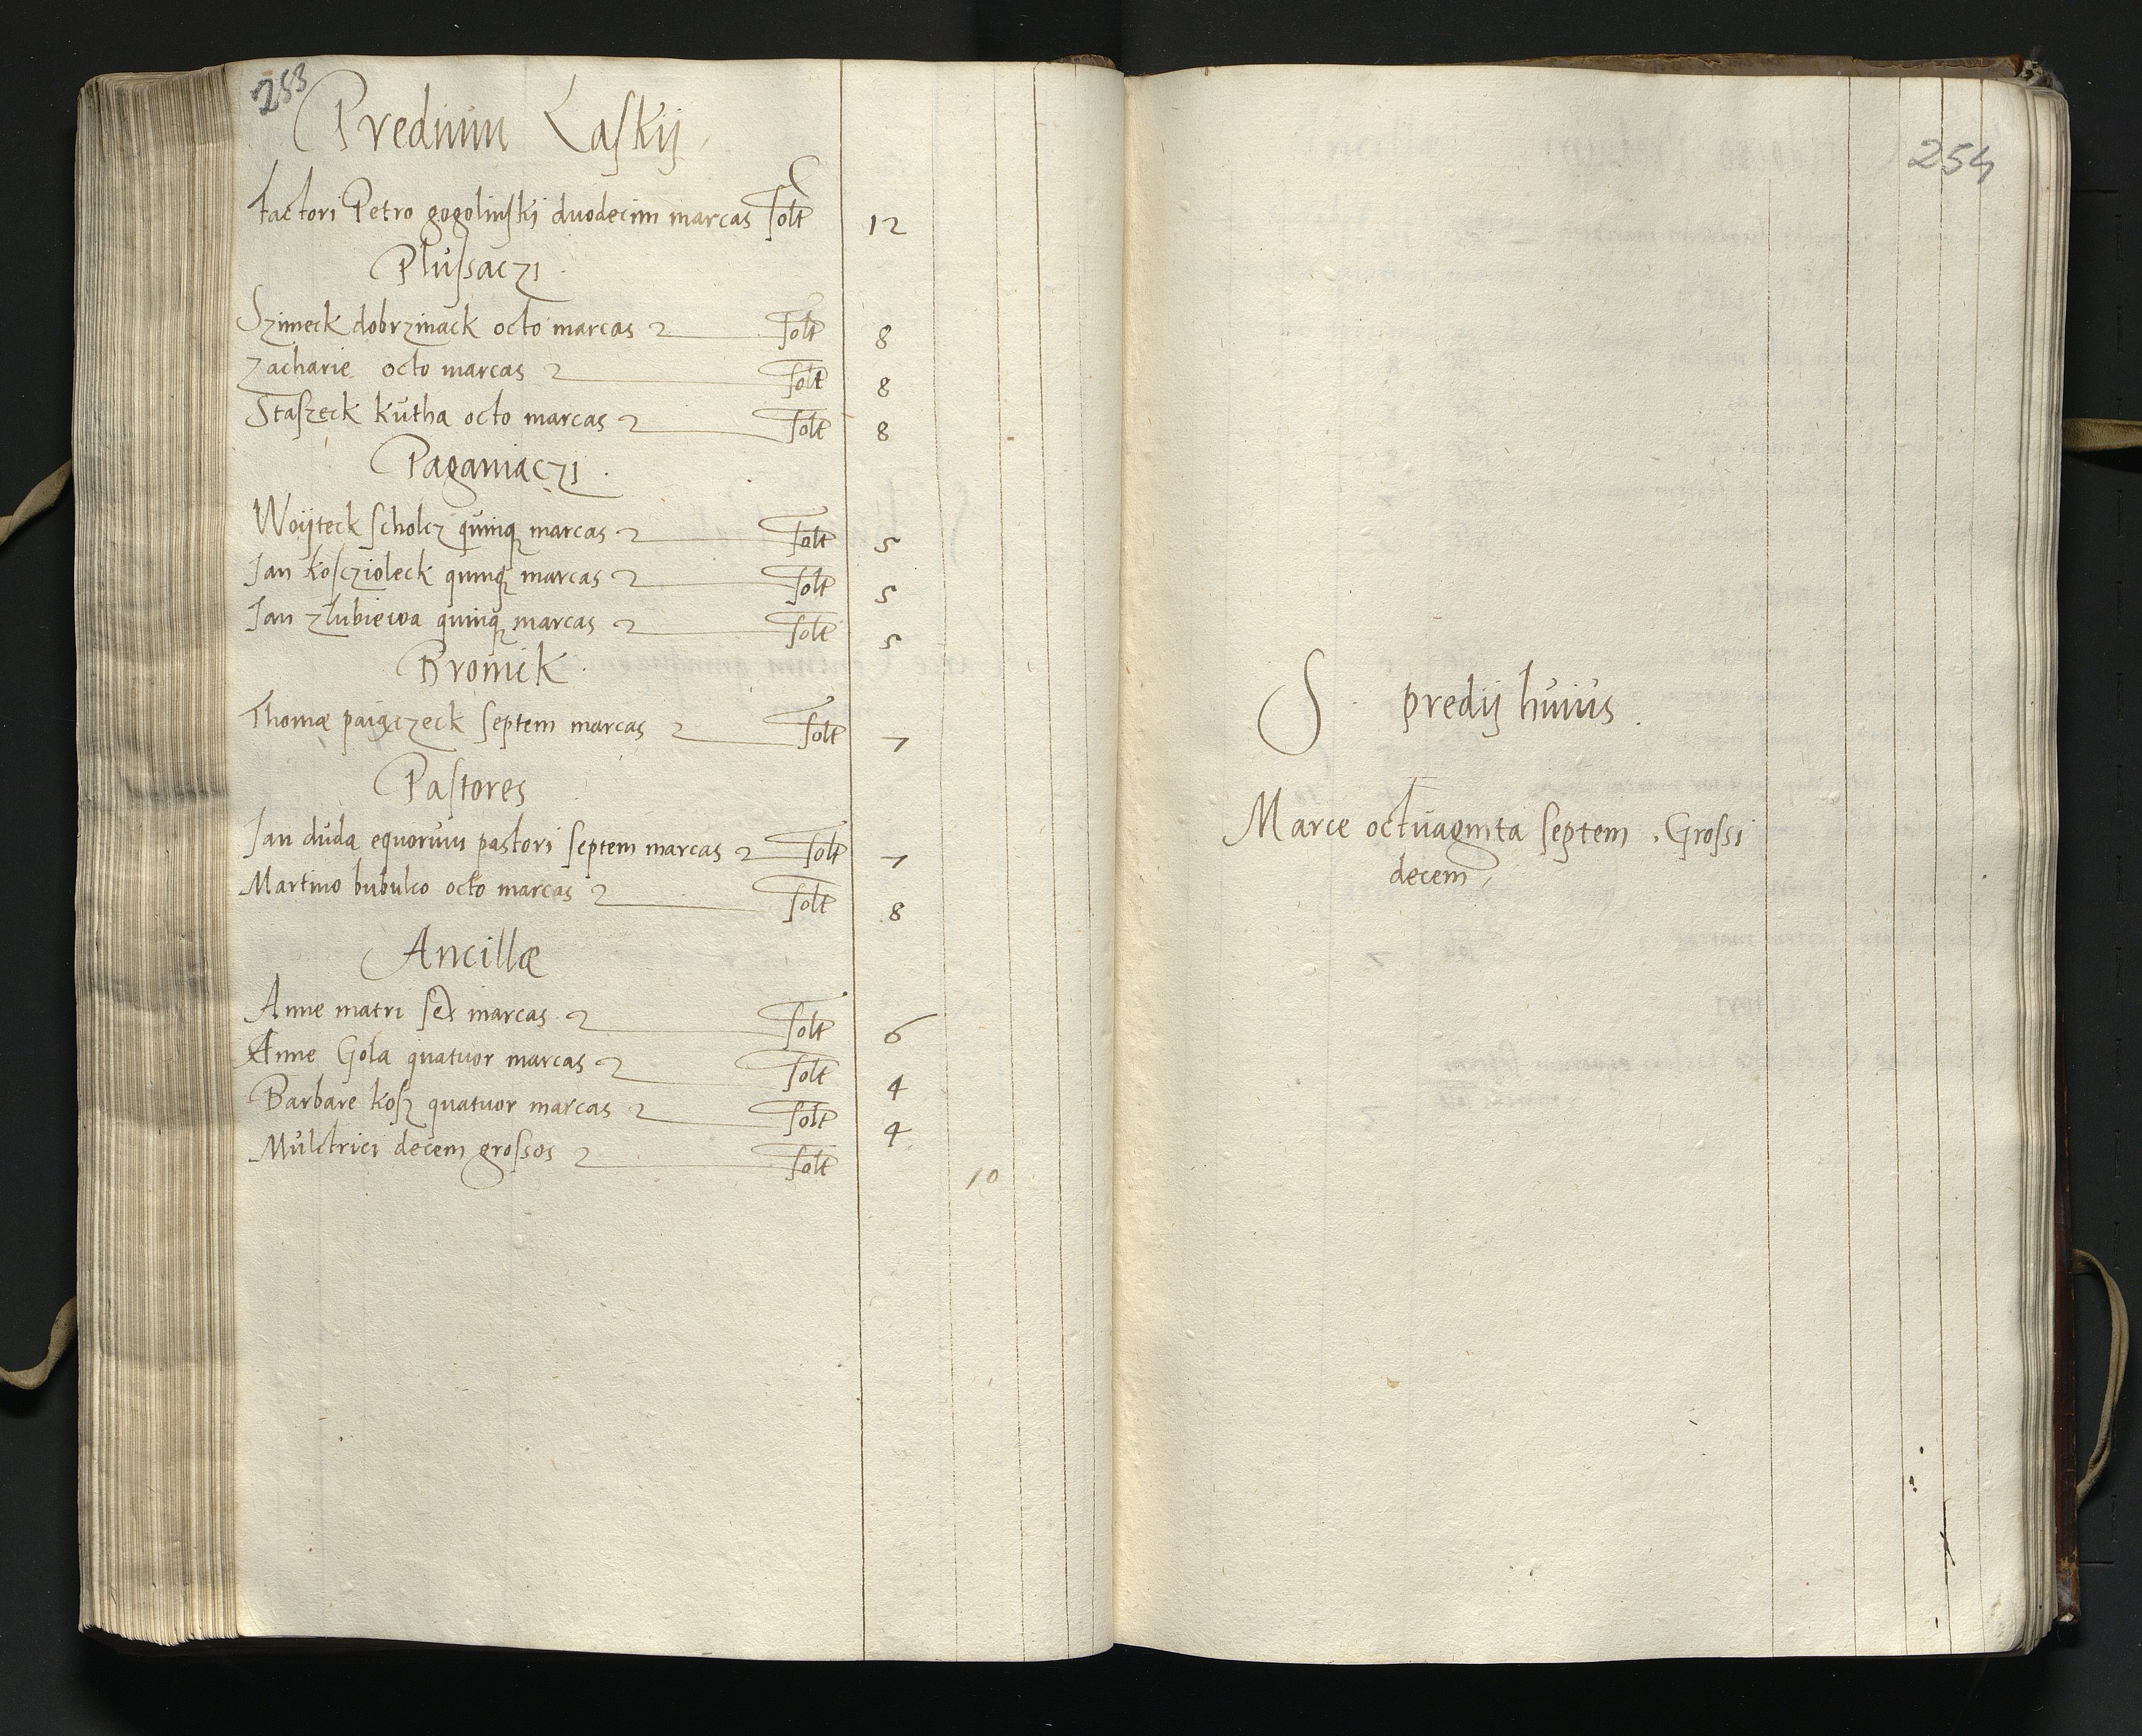 253
Predium Laskij
factori Petro gogolinski duodecim marcas solt 12
Plussaczi
Szimeck dobrzinack octo marcas solt 8
Zacharie octo marcas solt 8
Staszeck kutha octo marcas solt 8
Paganiaczi
Woijteck scholcz quinq marcas solt 5
Jan kosczioleck quinq marcas solt 5
Jan zlubiewa quinq marcas solt 5
Bronick
Thomæ paiączeck septem marcas solt 7
Pastores
Jan duda equorum pastori septem marcas solt 7
Martino bubulco octo marcas solt 8
Ancillæ
Anne matri sex marcas solt 6
Anne Gola quatuor marcas solt 4
Barbare kosz quatuor marcas solt 4
Mulctrici decem grossos solt 10
254
S predij huius
Marce octuaginta septem. Grossi
decem